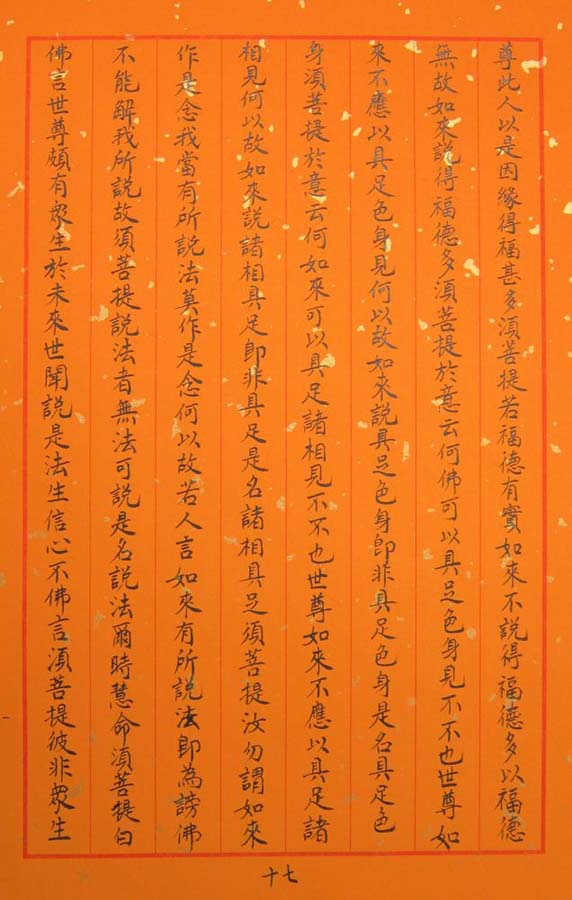 尊此人以是因緣得福甚多須菩提若福德有實如來不說得福德多以福德
無故如來說得福德多須菩提於意云何佛可以具足色身見不不也世尊如
來不應以具足色身見何以故如來說具足色身即非具足色身是名具足色
身須菩提於意云何如來可以具足諸相見不不也世尊如來不應以具足諸
相見何以故如來說諸相具足即非具足是名諸相具足須菩提汝勿謂如來
作是念我當有所說法莫作是念何以故若人言如來有所說法即為謗佛
不能解我所說故須菩提說法者無法可說是名說法爾時慧命須菩提白
佛言世尊頗有眾生於未來世聞說是法生信心不佛言須菩提彼非眾生
十七